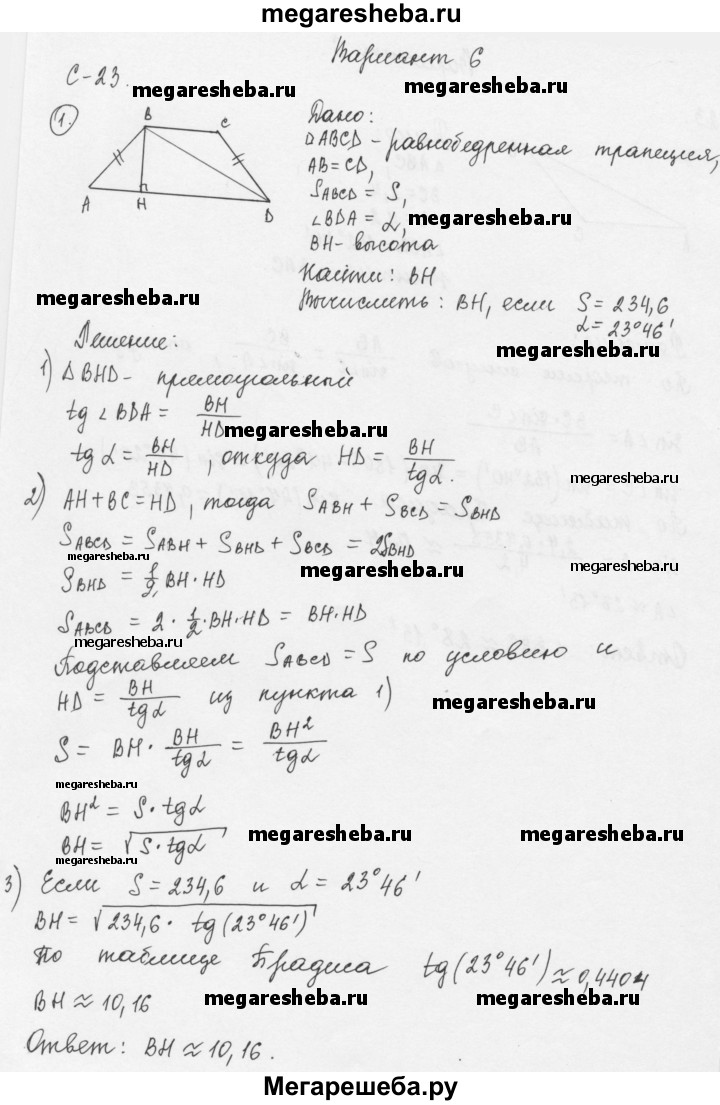 megaresheba.ru
Вариант 6
С-23. megaresheba.ru megaresheba.ru
1.
B C
A H D
Дано:
ABCD - равнобедренная трапеция,
AB = CD,
S_ABCD = S,
∠BDA = α, megaresheba.ru
BH - высота
Найти: BH
megaresheba.ru
Вычислить: BH, если S = 234,6
α = 23°46'
megaresheba.ru
Решение:
1) ΔBHD - прямоугольный
tg ∠BDA = BH/HD megaresheba.ru
tg α = BH/HD, откуда HD = BH/tgα.
megaresheba.ru
2) AH + BC = HD, тогда S_ABH + S_BCD = S_BHD
S_ABCD = S_ABH + S_BHD + S_BCD = 2S_BHD
megaresheba.ru megaresheba.ru megaresheba.ru
S_BHD = 1/2 BH·HD
S_ABCD = 2 · 1/2 · BH·HD = BH·HD
megaresheba.ru
Подставляем S_ABCD = S по условию и
HD = BH/tgα из пункта 1) megaresheba.ru
S = BH · BH/tgα = BH²/tgα
megaresheba.ru
BH² = S·tgα
BH = √(S·tgα) megaresheba.ru megaresheba.ru
megaresheba.ru
3) Если S = 234,6 и α = 23°46'
BH = √(234,6 · tg(23°46'))
По таблице Брадиса tg(23°46') ≈ 0,4404
BH ≈ 10,16 megaresheba.ru megaresheba.ru
Ответ: BH ≈ 10,16.
Мегарешеба.ру